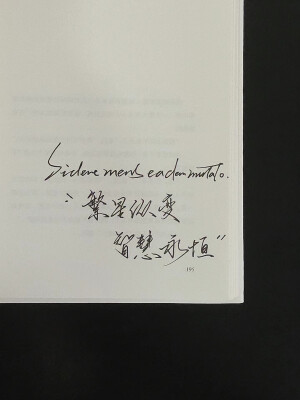 Sidere mens eadem mutato.
“繁星纵变
智慧永恒”
101